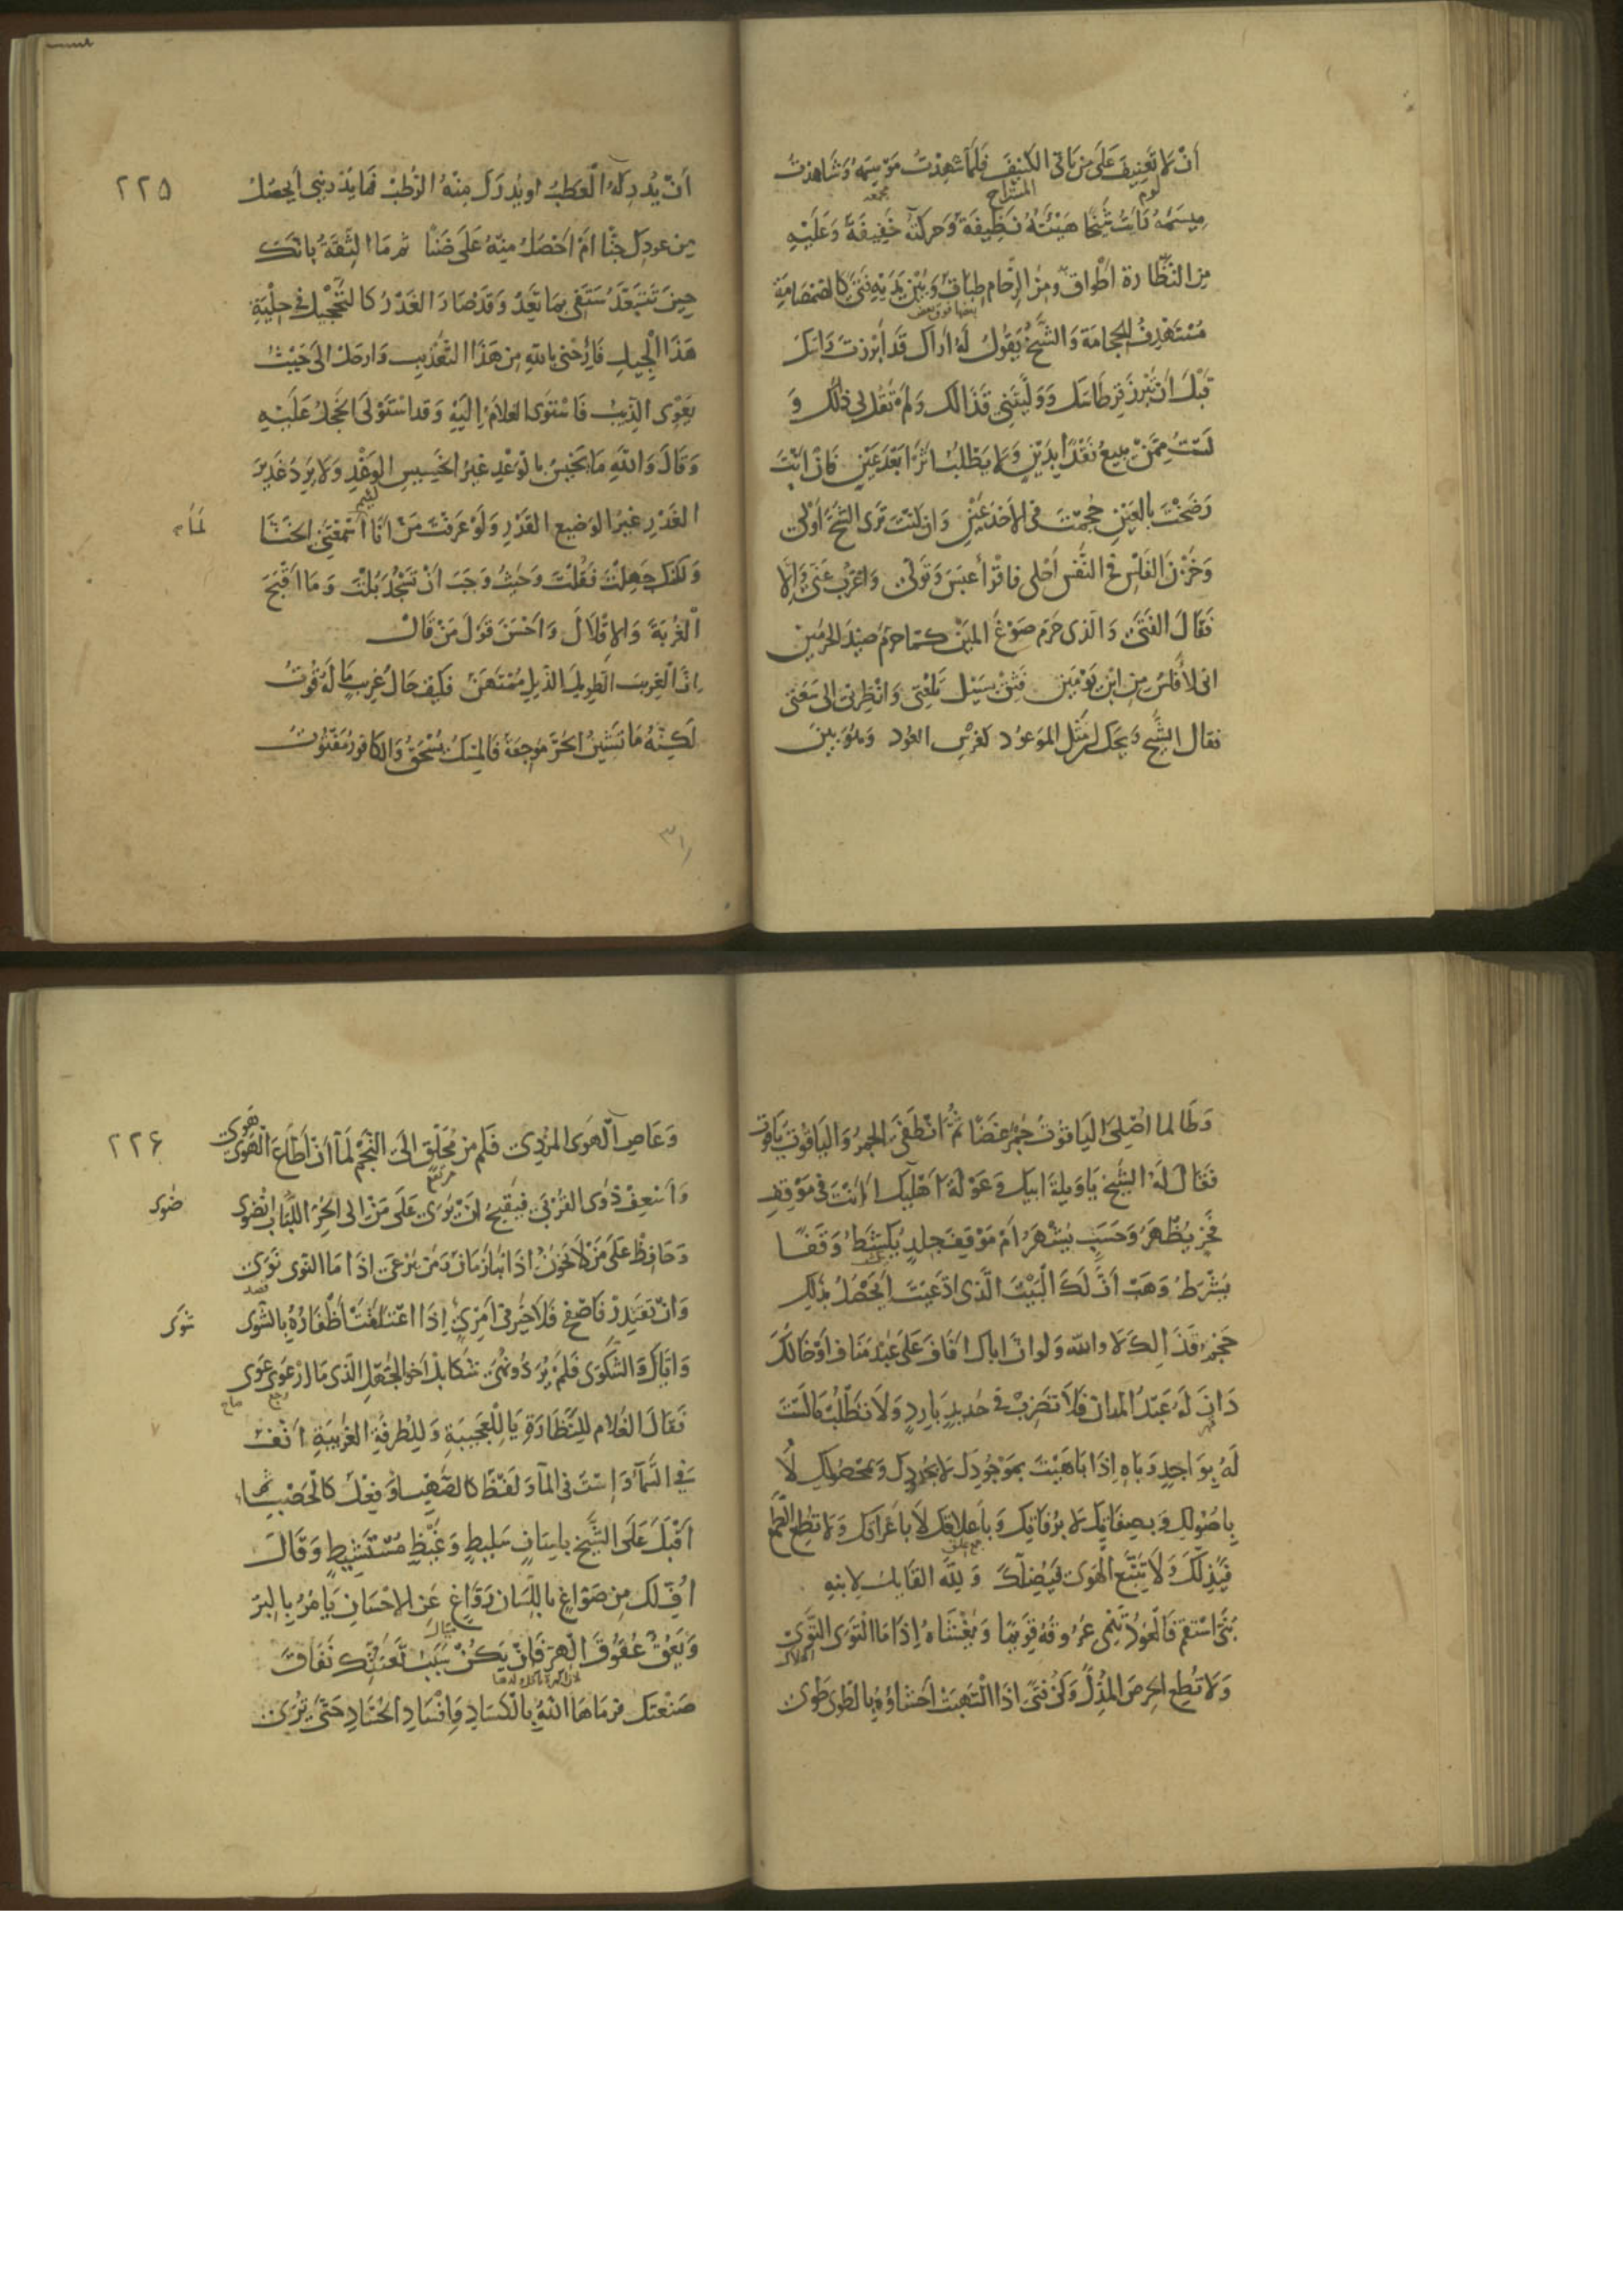 أن لا تعنيف على من ياتي الكنيف فلما شهدت موسمه وشاهدت
لوم المستراح مجمعه
ميسمه رايت شيخا هيئته نظيفة وحركته خفيفة وعليه
من النظارة أطواق ومن الزحام طباق وبين يديه فتى كالصمصامة
بعضها فوق بعض
مستهدف للحجامة والشيخ يقول له أراك قد أبرزت راسك
قبل أن تبرز قرطاسك ووليتني قذالك ولم تقل لي ذلك و
لست ممن يبيع نقدا بدين ولا يطلب اثرا بعد عين فان انت
رضخت بالعين حجمت في الاخدعين وان كنت ترى الشح أولى
وخزن الفلس في النفس أحلى فاقرأ عبس وتولى واغرب عني والا
فقال الفتى والذي حرم صوغ المين كما حرم صيد الحرمين
اني لأفلس من ابن يومين فثق بسيل تلعتي وانظرني الى سعتي
فقال الشيخ ويحك ان مثل الموعود كغرس العود وهو بين
أن يدركه العطب او يدرك منه الرطب فما يدريني أيحصل
٢٢٥
من عودك جنا ام احصل منه على ضنا ثم ما الثقة بانك
حين تبتعد ستفي بما تعد وقد صار الغدر كالتحجيل في حلية
هذا الجيل فارحني بالله من هذا التعذيب وارحل الى حيث
يعوى الذيب فاستوى الغلام إليه وقد استولى الخجل عليه
وقال والله ما يخيس بالوعد غير الخسيس الوغد ولا يرد غدير
لئيم
الغدر غير الوضيع القدر ولو عرفت من أنا أسمعتني الخنا
لما م
ولكنك جهلت فقلت وحيث وجب أن تسجد بلت وما اقبح
الغربة والاقلال واحسن قول من قال
إن الغريب الطويل الذيل ممتهن فكيف حال غريب ما له قوت
لكنه ما تشين الحر موجعة فالمسك يسحق والكافور مفتوت
٣١
وطالما أصلي الياقوت جمر غضا ثم انطفى الجمر والياقوت ياقوت
فقال له الشيخ يا ويلة ابيك وعولة اهليك اانت في موقف
فخر يظهر وحسب يشهر أم موقف جلد يكشط وقفا
يشرط وهب أن لك البيت الذي ادعيت أيحصل بذلك
حجم قذالك لا والله ولو ان اباك اناف على عبد مناف او خالك
دان له عبد المدان فلا تضرب في حديد بارد ولا تطلب ما لست
له بواجد وباه إذا باهيت بموجودك لا بجدودك وبمحصولك لا
باصولك وبصفاتك لا برفاتك وباعلاقك لا باعراقك ولا تطع الطمع
جمع علق
فيذلك ولا تتبع الهوى فيضلك ولله القايل لابنه
بني استقم فالعود تنمي عروقه قويما ويغشاه إذا ما التوى التوى
الهلاك
ولا تطع الحرص المذل وكن فتى اذا التهبت احشاؤه بالطوى طوى
وعاص الهوى المردي فكم من محلق الى النجم لما أن أطاع الهوى هوى
٢٢٦
واسعف ذوى القربى فيقبح ان يرى على من الى الحر اللباب انضوى
ضوى
وحافظ على من لا يخون اذا نبا زمان ومن يرعى اذا ما النوى نوى
قصد
وان تقتدر فاصفح فلا خير في امرئ إذا اعتلقت أظفاره بالشوى
شوى
واياك والشكوى فلم ير ذو نهى شكا بل اخو الجهل الذي ما ارعوى عوى
رجع صاح
فقال الغلام للنظارة يا للعجيبة وللطرفة الغريبة أنف
في السماء وإست في الماء ولفظ كالصهباء وفعل كالحصباء ثم
اقبل على الشيخ بلسان سليط وغيظ مستشيط وقال
اف لك من صواغ باللسان رواغ عن الاحسان يامر بالبر
ويعق عقوق الهر فان يكن سبب تعنتك نفاق
صنعتك فرماها الله بالكساد وافساد الحساد حتى ترى